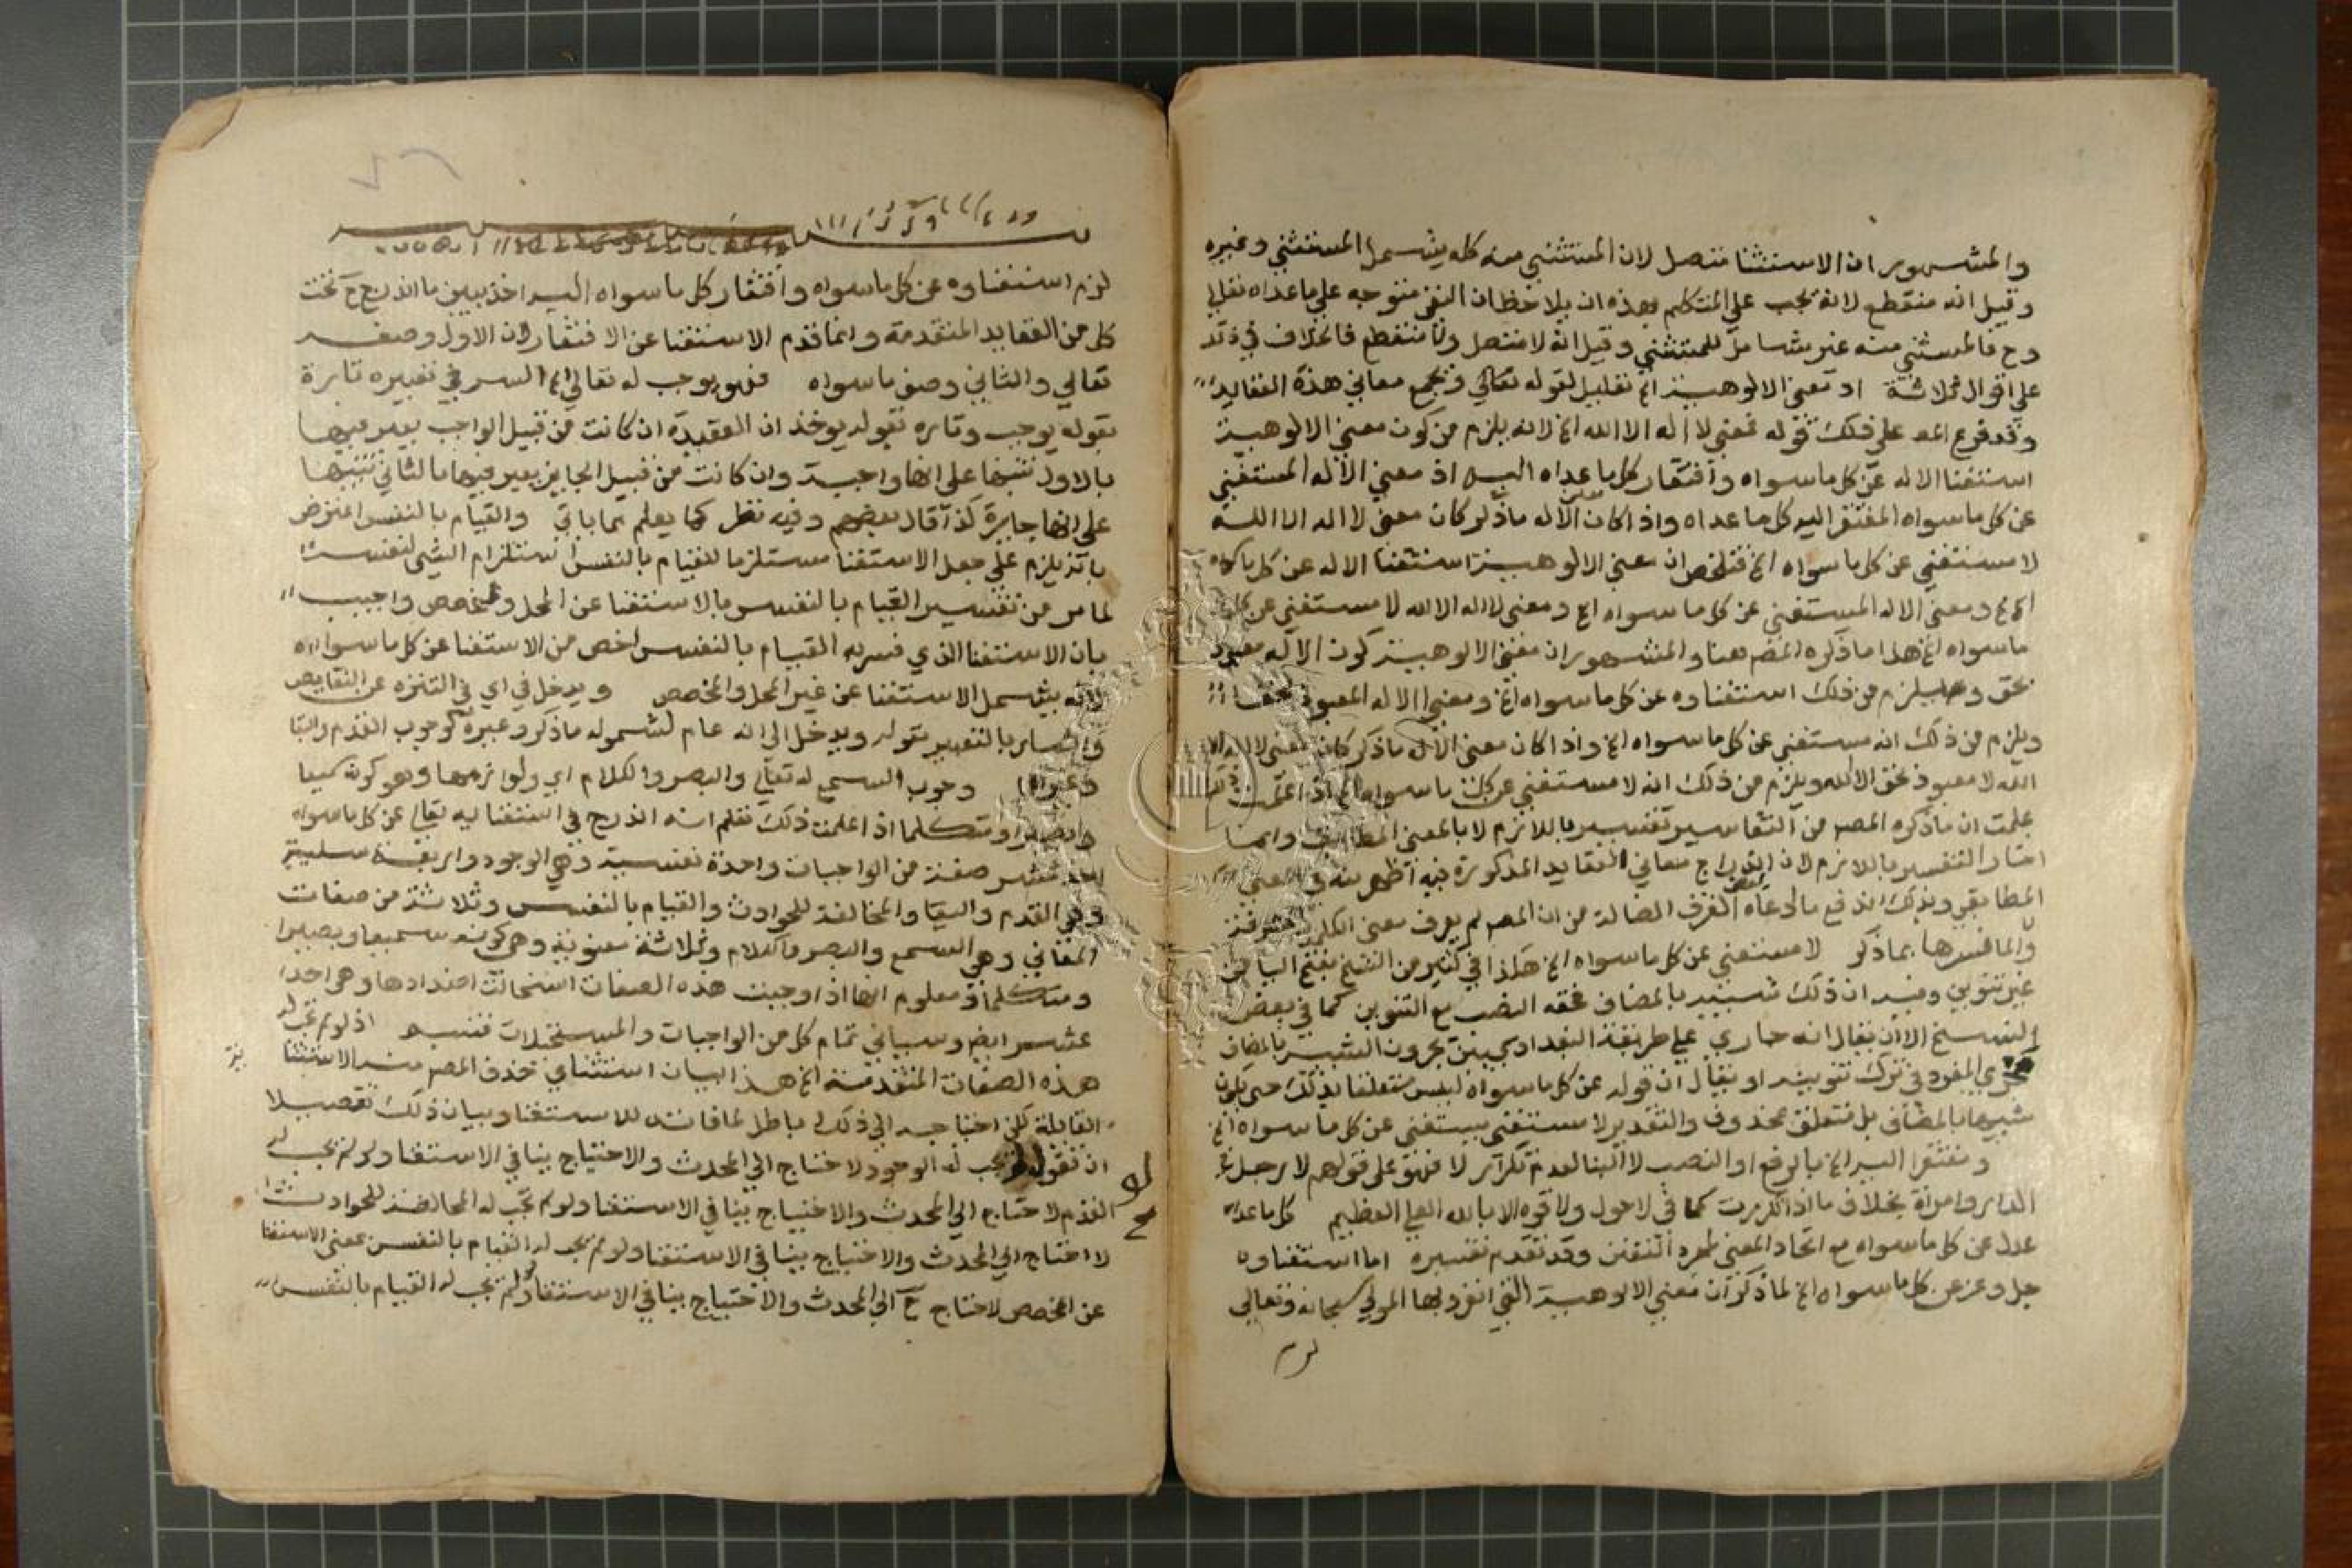 والمشهور ان الاستثنا متصل لان المستثني منه كله يشمل المستثني وغيره
وقيل انه منقطع لانه يجب علي المتكلم بهذه ان يلاحظ ان النفي متوجه علي ما عداه تعالي
وح فالمستثني منه غير شامل للمستثني وقيل انه لا متصل ولا منقطع فالخلاف في ذلك
علي اقوال ثلاثة اذ معني الالوهية الخ تعليل لقوله تعالي ويجمع معاني هذه العقايد
وقد فرع المص علي ذلك قوله فمعني لا اله الا الله الخ لانه يلزم من كون معني الالوهية
استغنا الاله عن كل ما سواه وافتقار كل ما عداه اليه اذ معني الاله المستغني
عن كل ما سواه المفتقر اليه كل ما عداه واذا كان معني الاله ما ذكر كان معني لا اله الا الله
لا مستغني عن كل ما سواه الخ فتلخص ان معني الالوهية استغنا الاله عن كل ما سواه
الخ ومعني الاله المستغني عن كل ما سواه الخ ومعني لا اله الا الله لا مستغني عن كل
ما سواه الخ هذا ما ذكره المص هنا والمشهور ان معني الالوهية كون الاله معبودا
بحق ويلزم من ذلك استغناوه عن كل ما سواه الخ ومعني الاله المعبود بحق
ويلزم من ذلك انه مستغني عن كل ما سواه الخ واذا كان معني الاله ما ذكر كان معني لا اله الا
الله لا معبود بحق الا الله ويلزم من ذلك انه لا مستغني عن كل ما سواه الخ اذا علمت ذلك
علمت ان ما ذكره المص من التفاسير تفسير باللازم لا بالمعني المطابقي وانما
اختار التفسير باللازم لان اندراج معاني العقايد المذكورة فيه اظهر منه في المعني
المطابقي وبذلك اندفع ما ادعاه بعض الفرق الضالة من ان المص لم يعرف معني الكلمة المشرفة
والما فسرها بما ذكر لا مستغني عن كل ما سواه الخ هكذا في كثير من النسخ بفتح اليا من
غير تنوين وفيه ان ذلك شبيه بالمضاف فحقه النصب مع التنوين كما في بعض
النسخ الا ان يقال انه جاري علي طريقة البغداديين يجرون الشبيه بالمضاف
مجري المفرد في ترك تنوينه او يقال ان قوله عن كل ما سواه ليس متعلقا بذلك حتي يكون
شبيها بالمضاف بل متعلق بمحذوف والتقدير لا مستغني يستغني عن كل ما سواه الخ
ومفتقرا اليه الخ بالرفع او النصب لا البنا لعدم تكرار لا فهو علي قولهم لا رجل في
الدار وامراة بخلاف ما اذا تكررت كما في لا حول ولا قوة الا بالله العلي العظيم كل ما عداه
عدل عن كل ما سواه مع اتحاد المعني لمجرد التفنن وقد تقدم تفسيره اما استغناوه
جل وعز عن كل ما سواه الخ لما ذكر ان معني الالوهية التي انفرد بها المولي سبحانه وتعالي
لزم
لزم استغناوه عن كل ما سواه وافتقار كل ما سواه اليه اخذ يبين ما اندرج ح تحت
كل من العقايد المتقدمة وانما قدم الاستغنا عن الافتقار لان الاول وصفه
تعالي والثاني وصف ما سواه فهو يوجب له تعالي الخ السر في تعبيره تارة
بقوله يوجب وتارة بقوله يوخذ ان العقيدة ان كانت من قبيل الواجب يعبر فيها
بالاول تنبيها علي انها واجبة وان كانت من قبيل الجايز يعبر فيها بالثاني تنبيها
علي انها جايزة كذا قال بعضهم وفيه نظر كما يعلم مما ياتي والقيام بالنفس اعترض
بانه يلزم علي جعل الاستغنا مستلزما للقيام بالنفس استلزام الشي لنفسه
لما مر من تفسير القيام بالنفس بالاستغنا عن المحل والمخصص واجيب
بان الاستغنا الذي فسر به القيام بالنفس اخص من الاستغنا عن كل ما سواه
لانه يشمل الاستغنا عن غير المحل والمخصص ويدخل في اي في التنزه عن النقايص
واشار بالتعبير بقوله ويدخل الي انه عام لشموله ما ذكر وغيره كوجوب القدم والبقا
وغيرها وجوب السمع له تعالي والبصر والكلام اي ولوازمها وهو كونه سميعا
وبصيرا ومتكلما اذا علمت ذلك تعلم انه اندرج في استغنايه تعالي عن كل ما سواه
احد عشر صفة من الواجبات واحدة نفسية وهي الوجود واربعة سلبية
وهي القدم والبقا والمخالفة للحوادث والقيام بالنفس وثلاثة من صفات
المعاني وهي السمع والبصر والكلام وثلاثة معنوية وهي كونه سميعا وبصيرا
ومتكلما ومعلوم انها اذا وجبت هذه الصفات استحالت اضدادها وهي احدا
عشر ايضا وسياتي تمام كل من الواجبات والمستحيلات فتنبه اذ لو لم تجب له
هذه الصفات المتقدمة الخ هذا البيان استثناي حذف المص منه الاستثنا
القايلة لكن احتياجه الي ذلك باطل لمنافاته للاستغنا وبيان ذلك تفصيلا
ان تقول لو لم يجب له الوجود لاحتاج الي المحدث والاحتياج ينافي الاستغنا ولو لم يجب له
القدم لاحتاج الي المحدث والاحتياج ينافي الاستغنا ولو لم تجب له المخالفة للحوادث
لاحتاج الي المحدث والاحتياج ينافي الاستغنا ولو لم يجب له القيام بالنفس بمعني الاستغنا
عن المخصص لاحتاج ح الي المحدث والاحتياج ينافي الاستغنا ولو لم يجب له القيام بالنفس